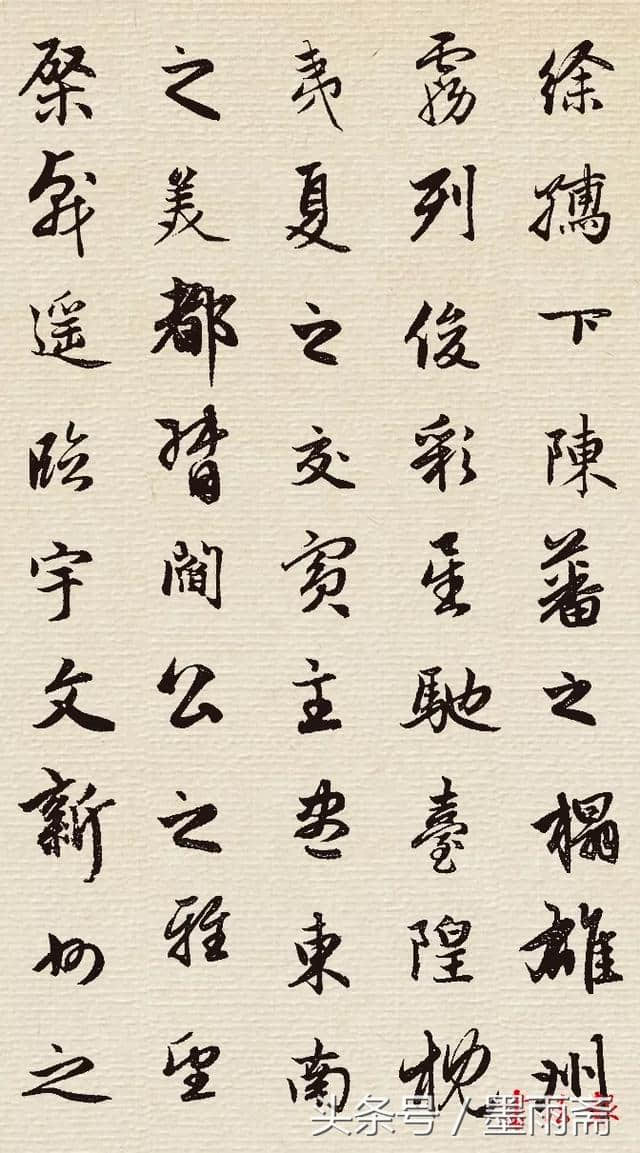 徐孺下陳蕃之榻雄州
霧列俊彩星馳臺隍枕
夷夏之交賓主盡東南
之美都督閻公之雅望
棨戟遙臨宇文新州之
头条号 / 墨雨斋